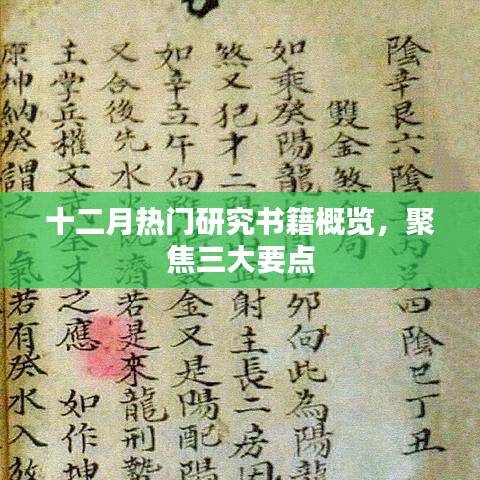 十二月热门研究书籍概览，聚
焦三大要点
陰辛艮六陰 兄四陰巳丁丑
雙金煞局
如乘癸陽龍 卯向此為陽龍
煞又犯才二 射主長二房因
如辛立午向 金又是陽配陽
又合後先水 濟若是來龍刑
主学兵權文 全才之應 如作坤
原坤納癸謂之一氣若有癸水入放